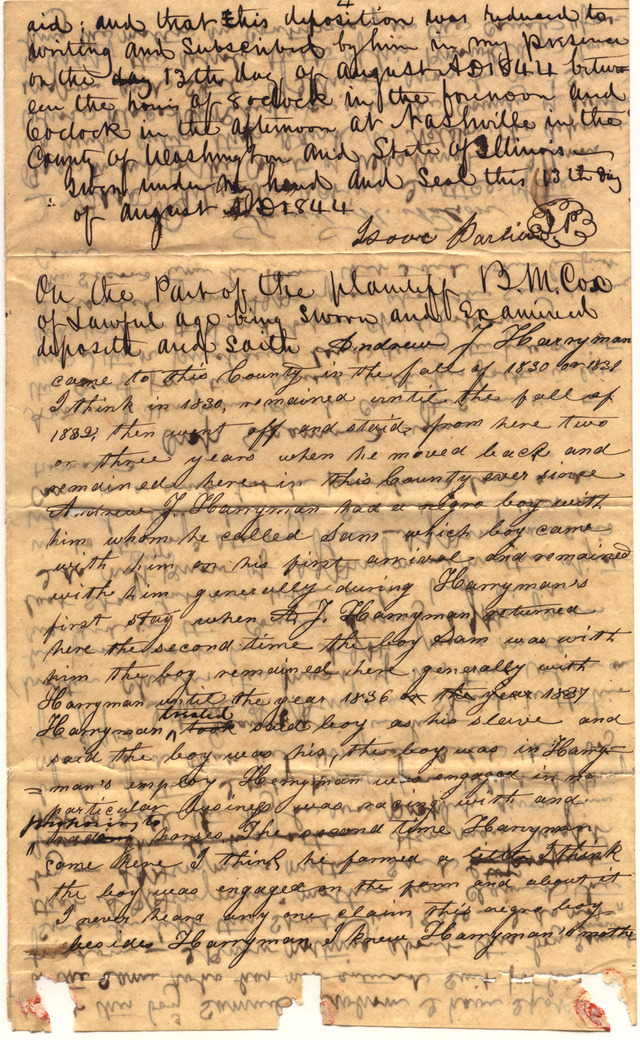 4
aid: and that this deposition was reduced to
writing and subscribed by him in my presence
on the day 13th day of august AD 1844 betwe
een the hours of 8 oclock in the forenoon and
6 oclock in the afternoon at Nashville in the
County of Washington and State of Illinois
Given under my hand and seal this 13th day
of august AD 1844
Isaac
On the Part of the plaintiff B. M. Cox
of Lawful age being sworn and Examined
deposeth and saith Andrew J. Harryman
came to this County in the fall of 1830 or 1831
I think in 1830, remained until the fall of
1832, then went off and staid from here two
or three years when he moved back and
remained here in this County ever since
Andrew J. Harryman had a negro boy with
him whom he called Sam which boy came
with him on his first arrival and remained
with him generally during Harryman's
first stay when A. J. Harryman returned
here the second time the boy Sam was with
him the boy remained here generally with
Harryman until the year 1836 or the year 1837
treated
Harryman took said boy as his slave and
said the boy was his, the boy was in Harry-
=man's employ Harryman was engaged in no
particular business was racing with and
trading horses The second time Harryman
came here I think he farmed a little I think
the boy was engaged on the farm and about it
I never heard any one claim this negro boy
besides Harryman I knew Harryman's mothe